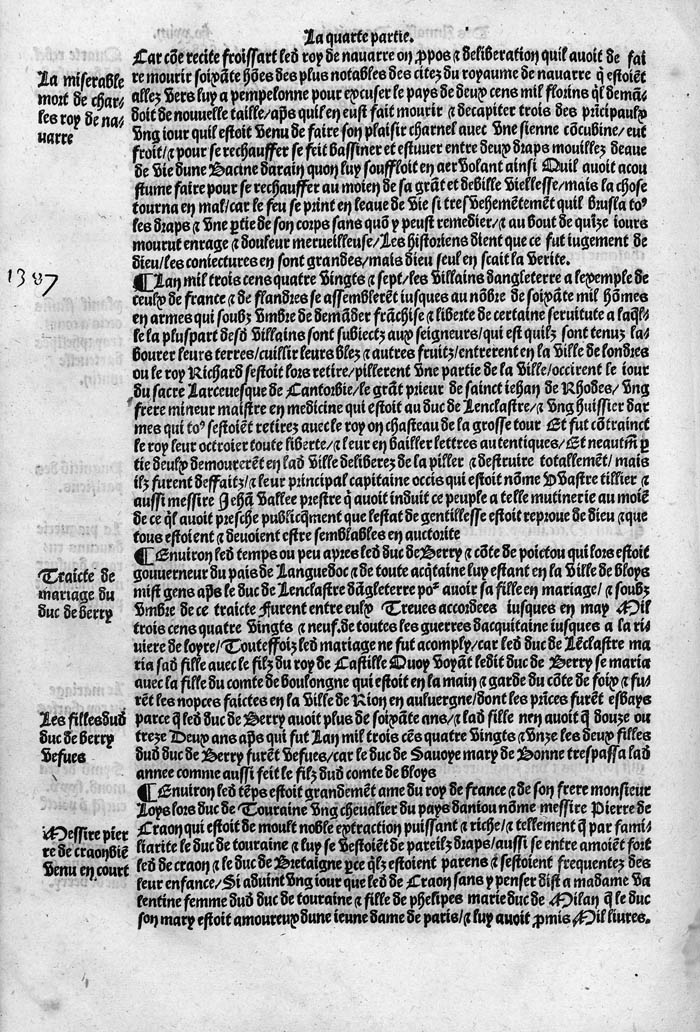 La quarte partie.
Car cõe recite froissart led̃ roy de nauarre on p̱pos & deliberation quil auoit de fai
re mourir soixãte hões des plus notables des citez du royaume de nauarre q̃ estoiẽt
allez vers luy a pempelonne pour excuser le pays de deux cens mil florins ql̃ demã-
doit de nouuelle taille/ap̃s quil en eust fait mourir & decapiter trois des prĩcipaulx
Vng iour quil estoit venu de faire son plaisir charnel auec vne sienne cõcubine/eut
froit/& pour se rechauffer se feit bassiner et estuuer entre deux draps mouillez deaue
de vie dune bacine darain quon luy souffloit en aer volant ainsi Quil auoit acou
stume faire pour se rechauffer au moien de sa grãt et debille viellesse/mais la chose
tourna en mal/car le feu se print en leaue de vie si tres vehemẽtemẽt quil brusla to⁹
les draps & vne p̱tie de son corps sans quõ y peust remedier/& au bout de quĩze iours
mourut enrage & douleur merueilleuse/Les historiens dient que ce fut iugement de
dieu/les coniectures en sont grandes/mais dieu seul en scait la verite.
La miserable
mort de char-
les roy de na-
uarre
1387
¶Lan mil trois cens quatre vingts & sept/les villains dangleterre a lexemple de
ceulx de france & de flandres se assemblerẽt iusques au nõbre de soixãte mil hõmes
en armes qui soubz vmbre de demãder frãchise & liberte de certaine seruitute a laql̃-
le la pluspart desd̃ villains sont subiectz aux seigneurs/qui est quilz sont tenuz la-
bourer leurs terres/cuillir leurs blez & autres fruitz/entrerent en la ville de londres
ou le roy Richard sestoit lors retire/pillerent vne partie de la ville/occirent le iour
du sacre Larceuesque de Cantorbie/le grãt prieur de sainct iehan de Rhodes/vng
frere mineur maistre en medicine qui estoit au duc de Lenclastre/& vng huissier dar
mes qui to⁹ sestoiẽt retirez auec le roy on chasteau de la grosse tour Et fut cõtrainct
le roy leur octroier toute liberte/& leur en bailler lettres autentiques/Et neautm̃ p̱
tie deulx demourerẽt en lad̃ ville deliberez de la piller & destruire totallemẽt/mais
ilz furent deffaitz/& leur principal capitaine occis qui estoit nõme vvastre tillier &
aussi messire Jehã vallee prestre q̃ auoit induit ce peuple a telle mutinerie au moiẽ
de ce ql̃ auoit presche publicq̃ment que lestat de gentillesse estoit reproue de dieu & que
tous estoient & deuoient estre semblables en auctorite
¶Enuiron led̃ temps ou peu apres led̃ duc de berry & cõte de poictou qui lors estoit
gouuerneur du pais de Languedoc & de toute acq̃taine luy estant en la ville de bloys
mist gens ap̃s le duc de Lenclastre dãgleterre po² auoir sa fille en mariage/& soubz
vmbre de ce traicte furent entre eulx Treues accordees iusques en may Mil
trois cens quatre vingts & neuf. de toutes les guerres dacquitaine iusques a la ri-
uiere de loyre/Touteffoiz led̃ mariage ne fut acomply/car led̃ duc de Lẽclastre ma
ria sad̃ fille auec le filz du roy de Castille Quoy voyãt ledit duc de Berry se maria
auec la fille du comte de boulongne qui estoit en la main & garde du cõte de foix & fu-
rẽt les nopces faictes en la ville de Rion en auluergne/dont les prĩces furẽt esbays
parce q̃ led̃ duc de Berry auoit plus de soixãte ans/& lad̃ fille nen auoit q̃ douze ou
treze Deux ans ap̃s qui fut Lan mil trois cẽs quatre vingts & vnze les deux filles
dud̃ duc de Berry furẽt vefues/car le duc de Sauoye mary de Bonne trespassa lad̃
annee comme aussi feit le filz dud̃ comte de bloys
Traicte de
mariage du
duc de berry
Les filles dud̃
duc de berry
vefues
¶Enuiron led̃ tẽps estoit grandemẽt ame du roy de france & de son frere monsieur
Loys lors duc de Touraine vng cheualier du pays daniou nõme messire Pierre de
Craon qui estoit de moult noble extraction puissant & riche/& tellement q̃ par fami-
liarite le duc de touraine & luy se vestoiẽt de pareilz draps/aussi se entre amoiẽt fort
led̃ de craon & le duc de Bretaigne p̱ce ql̃z estoient parens & sestoient frequentez des
leur enfance/Si aduint vng iour que led̃ de Craon sans y penser dist a madame va
lentine femme dud̃ duc de touraine & fille de phelipes marie duc de Milan q̃ le duc
son mary estoit amoureux dune ieune dame de paris/& luy auoit p̱mis Mil liures.
Messire pier
re de craon biẽ
venu en court